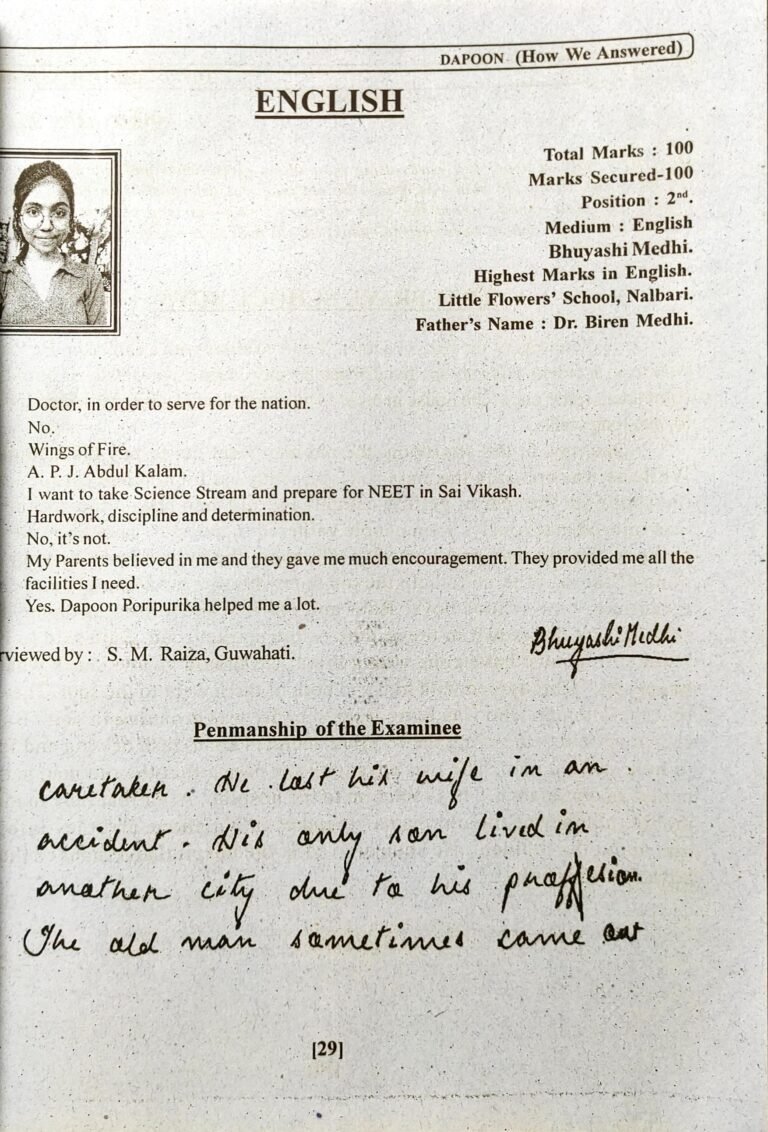 DAPOON (How We Answered)
ENGLISH
Total Marks : 100
Marks Secured-100
Position : 2nd.
Medium : English
Bhuyashi Medhi.
Highest Marks in English.
Little Flowers' School, Nalbari.
Father's Name : Dr. Biren Medhi.
Doctor, in order to serve for the nation.
No.
Wings of Fire.
A. P. J. Abdul Kalam.
I want to take Science Stream and prepare for NEET in Sai Vikash.
Hardwork, discipline and determination.
No, it's not.
My Parents believed in me and they gave me much encouragement. They provided me all the
facilities I need.
Yes. Dapoon Poripurika helped me a lot.
rviewed by : S. M. Raiza, Guwahati.
Bhuyashi Medhi
Penmanship of the Examinee
caretaker. He lost his wife in an
accident. His only son lived in
another city due to his proffesion.
The old man sometimes came out
[29]